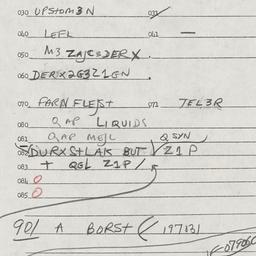 030 UPSTOM3N 031
040 LEFL 041 —
050 M3 ZAJC=DERX.
060 DERX2G3Z1GN.
070 FARN FLEJT 072 TEL3R
080 QAP LIQUIDS
081 QAP MEJL QSYN
082 DURXS+LAK BUT Z1P
+ QGL Z1P/
084 O
085 O
901 A BORST 197131